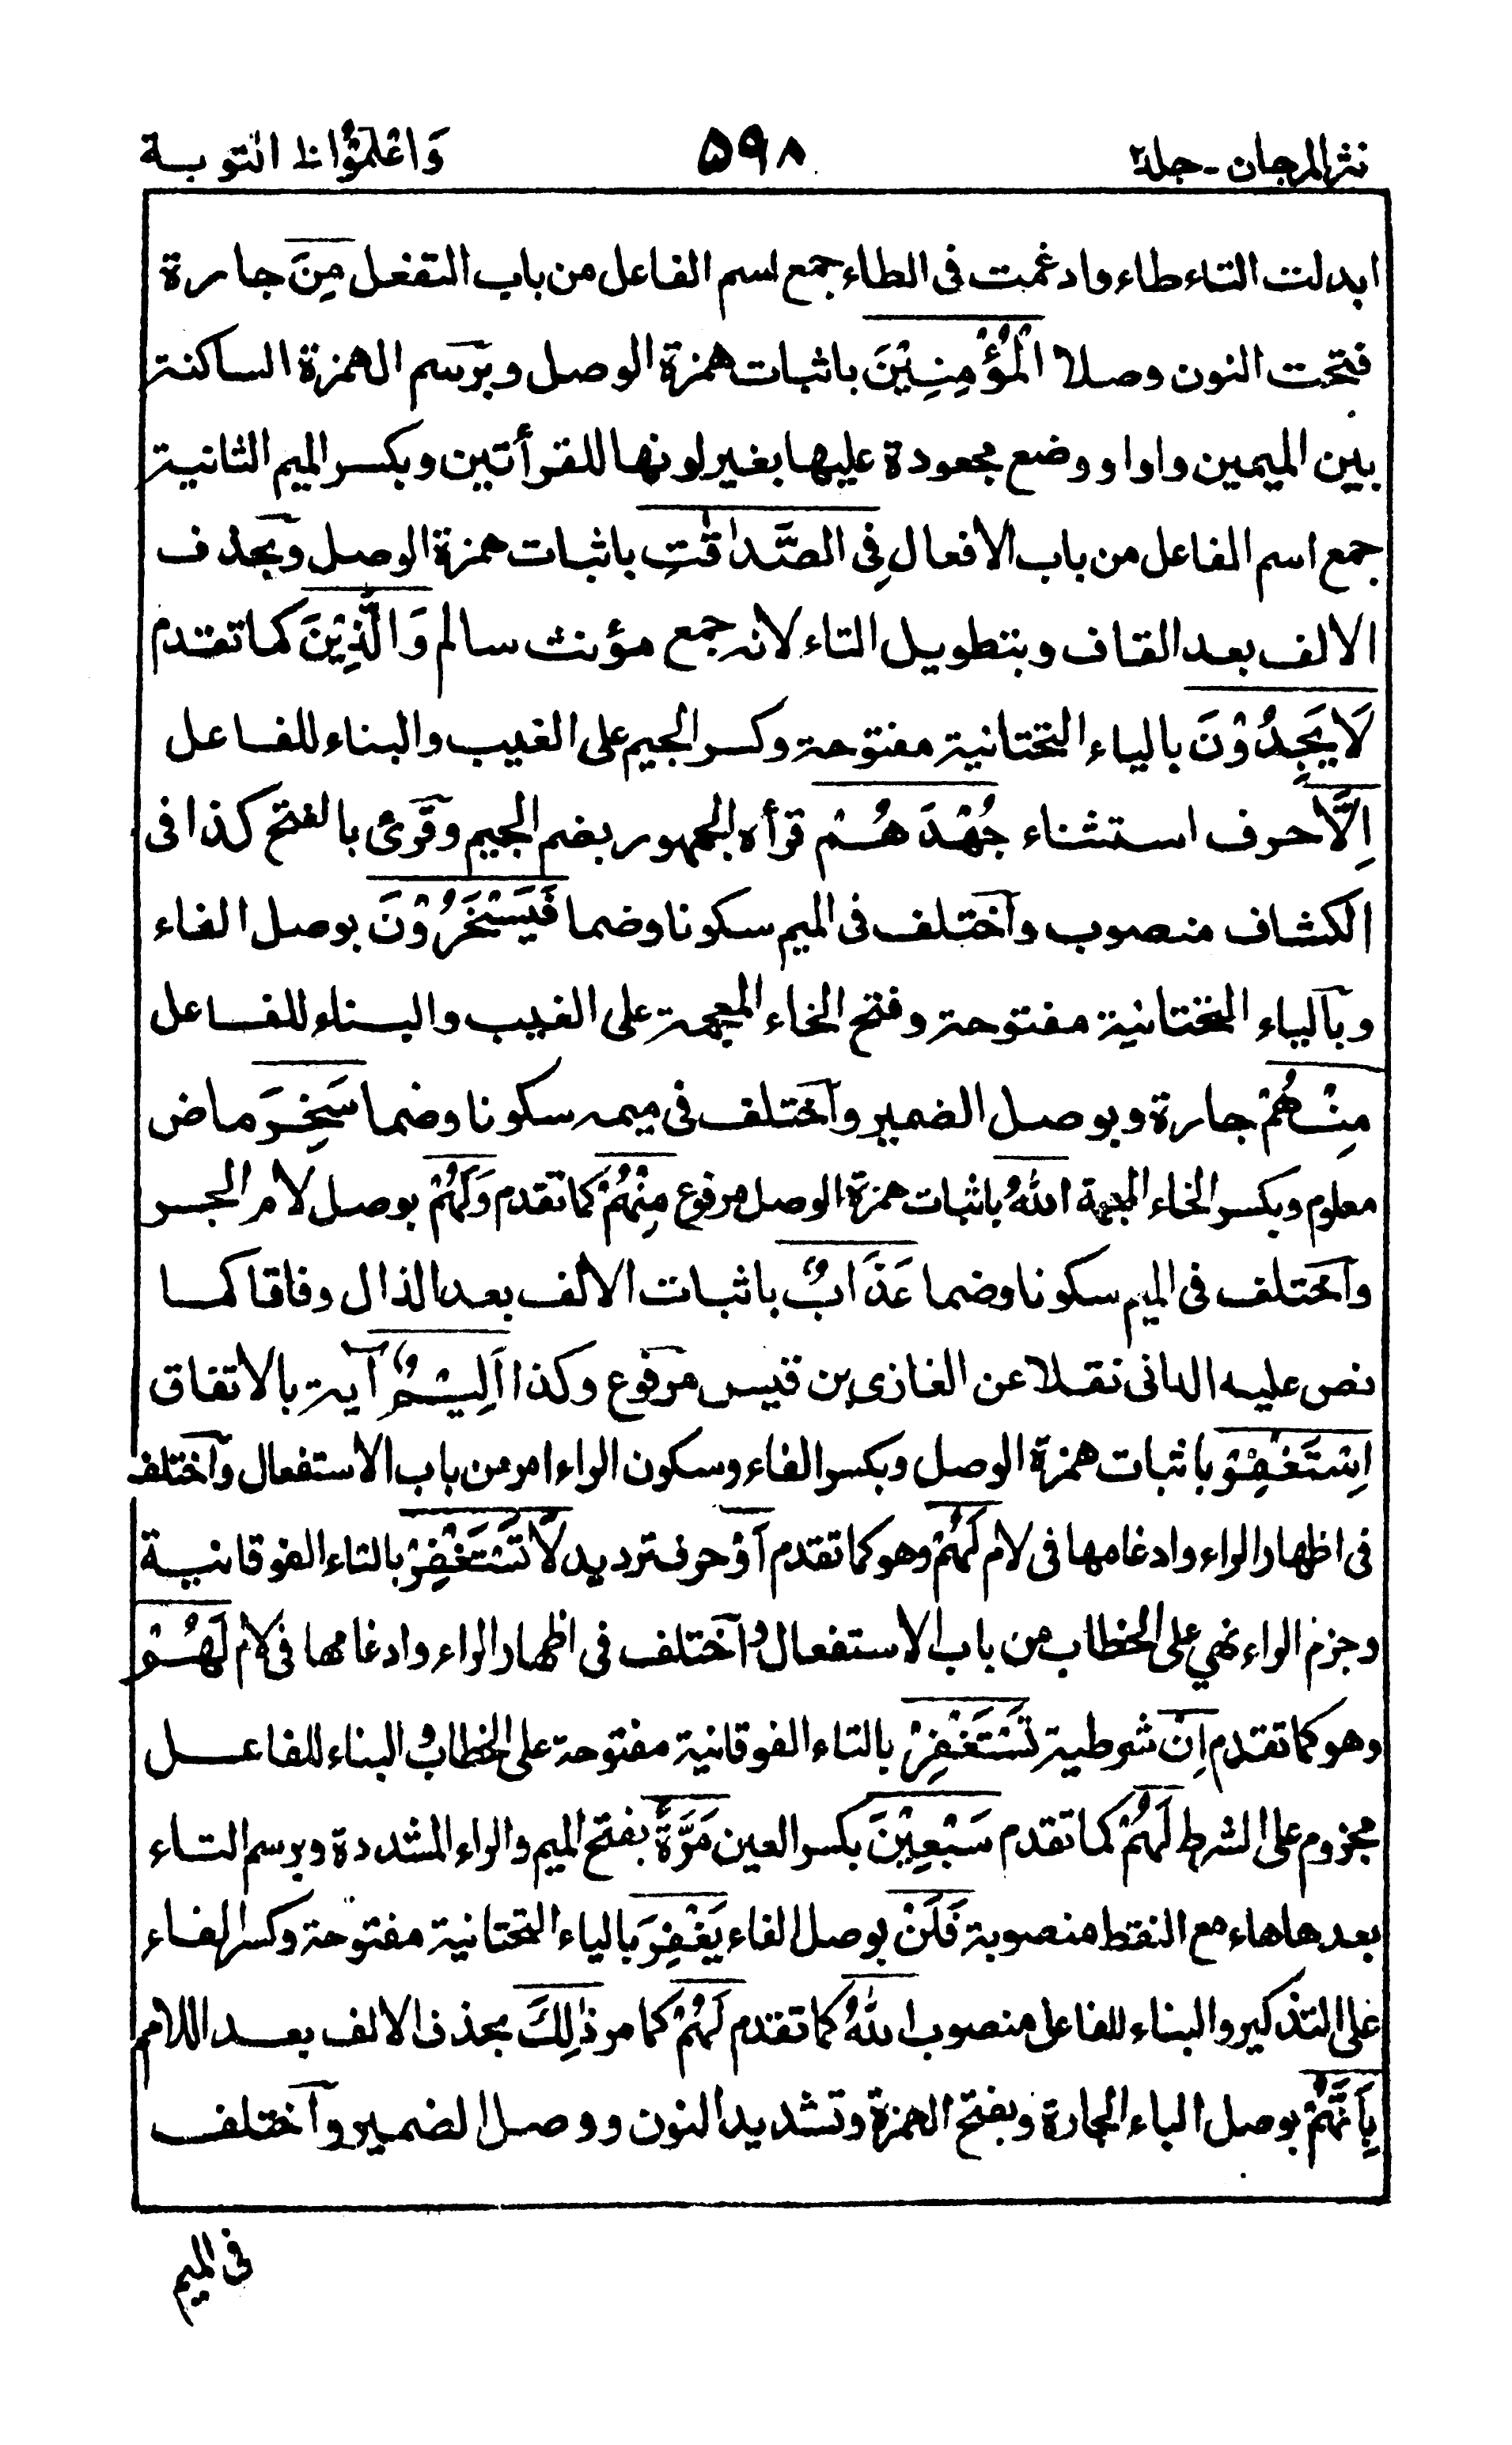 نثر المرجان - جلد٢
۵۹۸
وَاعْلَمُوْا ١٠ التوبة
ابدلت التاء طاء وادغمت فى الطاء جمع اسم الفاعل من باب التفعل مِنَ جارة
فتحت النون وصلا الْمُؤْمِنِيْنَ باثبات همزة الوصل وبرسم الهمزة الساكنة
بين الميمين واوا ووضع مجعودة عليها بغير لونها للقرأتين وبكسر الميم الثانية
جمع اسم الفاعل من باب الافعال فِى الصَّدَقٰتِ باثبات همزة الوصل وبحذف
الالف بعد القاف وبتطويل التاء لانه جمع مؤنث سالم وَالَّذِيْنَ كما تقدم
لَايَجِدُوْنَ بالياء التحتانية مفتوحة وكسر الجيم على الغيب والبناء للفاعل
اِلَّا حرف استثناء جُهْدَهُمْ قرأه الجمهور بضم الجيم وقرئ بالفتح كذا فى
الكشاف منصوب واختلف فى الميم سكونا وضما فَيَسْخَرُوْنَ بوصل الفاء
وبالياء التحتانية مفتوحة وفتح الخاء المعجمة على الغيب والبناء للفاعل
مِنْهُمْ جارة وبوصل الضمير واختلف فى ميمه سكونا وضما سَخِرَ ماض
معلوم وبكسر الخاء المعجمة اللهُ باثبات همزة الوصل مرفوع مِنْهُمْ كما تقدم وَلَهُمْ بوصل لام الجر
واختلف فى الميم سكونا وضما عَذَابٌ باثبات الالف بعد الذال وفاقا كما
نص عليه الدانى نقلا عن الغازى بن قيس مرفوع وكذا اَلِيْمٌ آية بالاتفاق
اِسْتَغْفِرْ باثبات همزة الوصل وبكسر الفاء وسكون الراء امر من باب الاستفعال واختلف
فى اظهار الراء وادغامها فى لام لَهُمْ وهو كما تقدم اَوْ حرف ترديد لَا تَسْتَغْفِرْ بالتاء الفوقانية
وجزم الراء نهي على الخطاب من باب الاستفعال واختلف فى اظهار الراء وادغامها فى لام لَهُمْ
وهو كما تقدم اِنْ شرطية تَسْتَغْفِرْ بالتاء الفوقانية مفتوحة على الخطاب والبناء للفاعل
مجزوم على الشرط لَهُمْ كما تقدم سَبْعِيْنَ بكسر العين مَرَّةً بفتح الميم والراء المشددة وبرسم التاء
بعدها هاء مع النقط منصوبة فَلَنْ بوصل الفاء يَغْفِرَ بالياء التحتانية مفتوحة وكسر الفاء
على التذكير والبناء للفاعل منصوب اللهُ كما تقدم لَهُمْ كما مر ذٰلِكَ بحذف الالف بعد اللام
بِاَنَّهُمْ بوصل الباء الجارة وبفتح الهمزة وتشديد النون ووصل الضمير واختلف
فى الميم